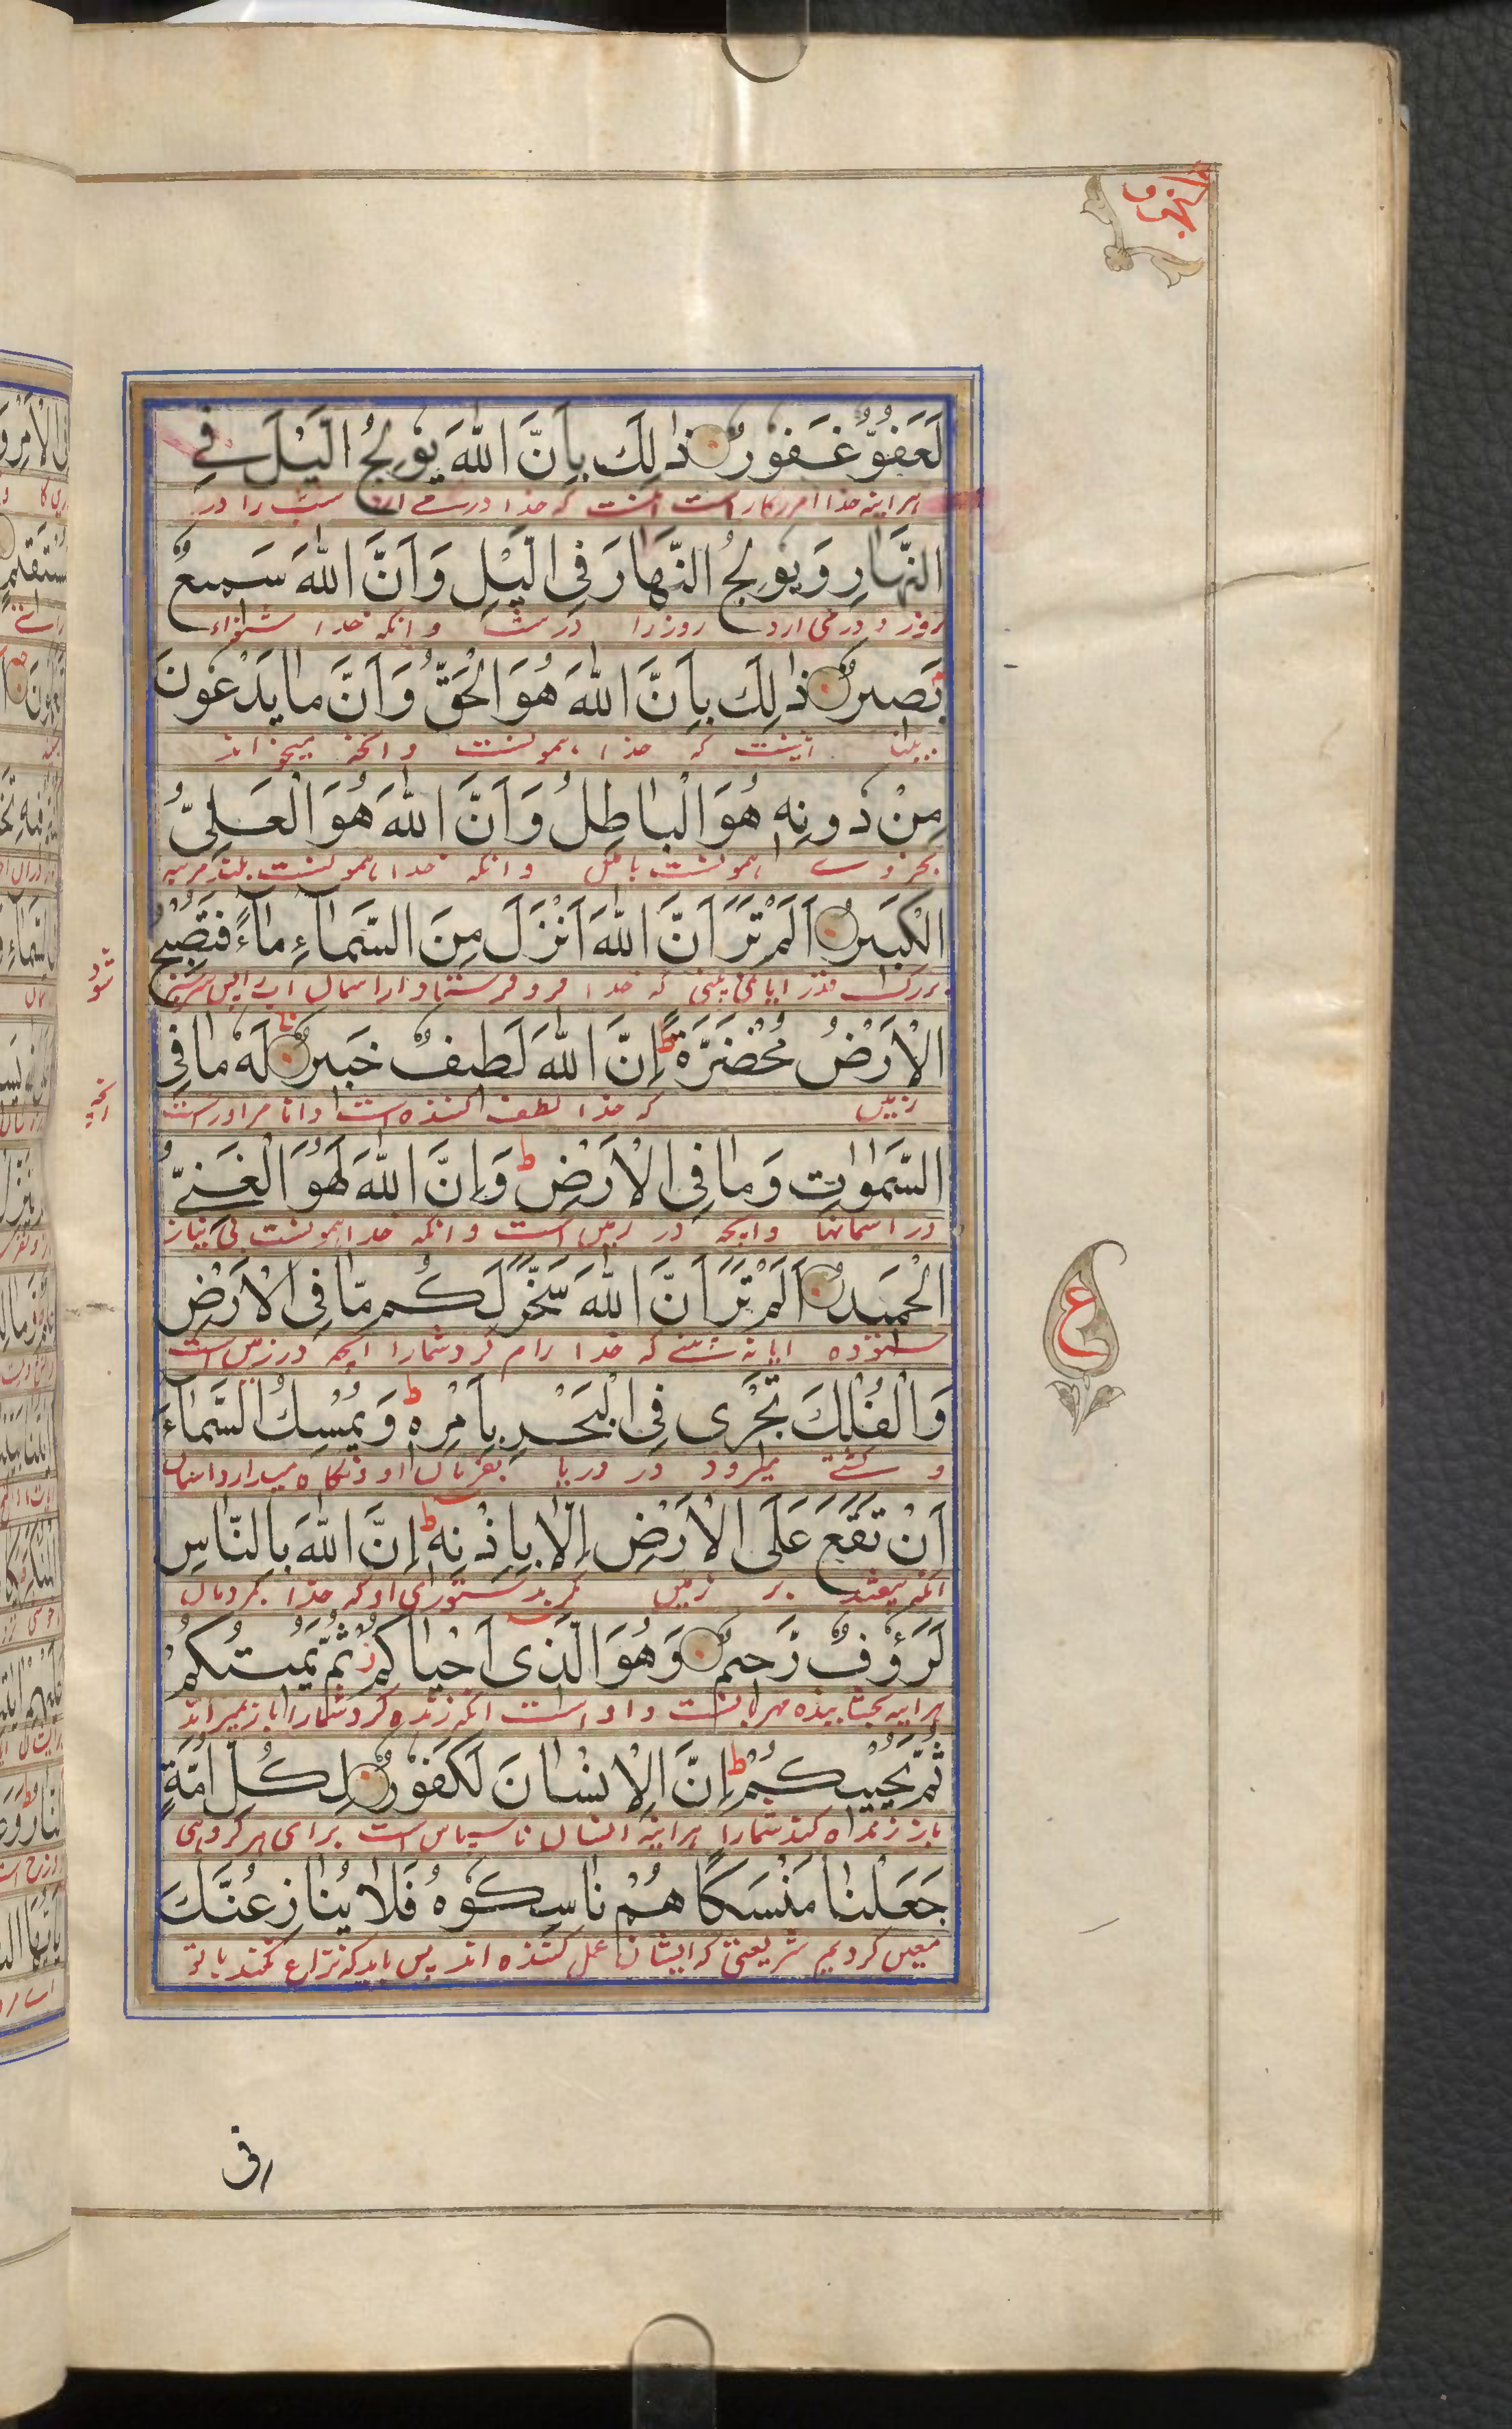 لَعَفُوٌّ غَفُورٌ ذٰلِكَ بِاَنَّ اللّٰهَ يُوْلِجُ الَّيْلَ فِي
هر اینه خدا امرزکار است اینست که خدا درمے ارد شب را در
النَّهَارِ وَيُوْلِجُ النَّهَارَ فِي الَّيْلِ وَاَنَّ اللّٰهَ سَمِيْعٌ
روز و درمی ارد روز را در شب و انکه خدا شنواء
بَصِيْرٌ ذٰلِكَ بِاَنَّ اللّٰهَ هُوَ الْحَقُّ وَاَنَّ مَا يَدْعُوْنَ
بینا اینست که خدا همونست و انچه میخوانند
مِنْ دُوْنِهٖ هُوَ الْبَاطِلُ وَاَنَّ اللّٰهَ هُوَ الْعَلِيُّ
بجز وے همونست باطل و انکه خدا همونست بلند مرتبه
الْكَبِيْرُ اَلَمْ تَرَ اَنَّ اللّٰهَ اَنْزَلَ مِنَ السَّمَآءِ مَآءً فَتُصْبِحُ
بزرک قدر ایا نمی بینی که خدا فرو فرستاد از اسمان اب پس سرسبز
شود
الْاَرْضُ مُخْضَرَّةً ط اِنَّ اللّٰهَ لَطِيْفٌ خَبِيْرٌ لَهٗ مَا فِي
زمین که خدا لطف کننده است دانا مر اوراست
انچه
السَّمٰوٰتِ وَمَا فِي الْاَرْضِ ط وَاِنَّ اللّٰهَ لَهُوَ الْغَنِيُّ
در اسمانها و انچه در زمین است و انکه خدا همونست بی نیاز
الْحَمِيْدُ اَلَمْ تَرَ اَنَّ اللّٰهَ سَخَّرَ لَكُمْ مَّا فِي الْاَرْضِ
ستوده ایا نه بینے که خدا رام کرد شمارا انچه در زمین است
ع
وَالْفُلْكَ تَجْرِىْ فِي الْبَحْرِ بِاَمْرِهٖ ط وَيُمْسِكُ السَّمَآءَ
و کشتے میرود در دریا بفرمان او و نکاه میدارد اسمان
اَنْ تَقَعَ عَلَى الْاَرْضِ اِلَّا بِاِذْنِهٖ ط اِنَّ اللّٰهَ بِالنَّاسِ
انکه بیفتد بر زمین مکر بدستوری او که خدا بمردمان
لَرَءُوْفٌ رَّحِيْمٌ وَهُوَ الَّذِىْ اَحْيَاكُمْ ز ثُمَّ يُمِيْتُكُمْ
هر اینه بخشاینده مهربانست و او است انکه زنده کرد شمارا باز میراند
ثُمَّ يُحْيِيْكُمْ ط اِنَّ الْاِنْسَانَ لَكَفُوْرٌ لِكُلِّ اُمَّةٍ
باز زنده کند شمارا هر اینه انسان ناسپاس است برای هر کروهی
جَعَلْنَا مَنْسَكًا هُمْ نَاسِكُوْهُ فَلَا يُنَازِعُنَّكَ
معین کردیم شریعتی که ایشان عمل کننده اند پس باید که نزاع نکنند با تو
فى